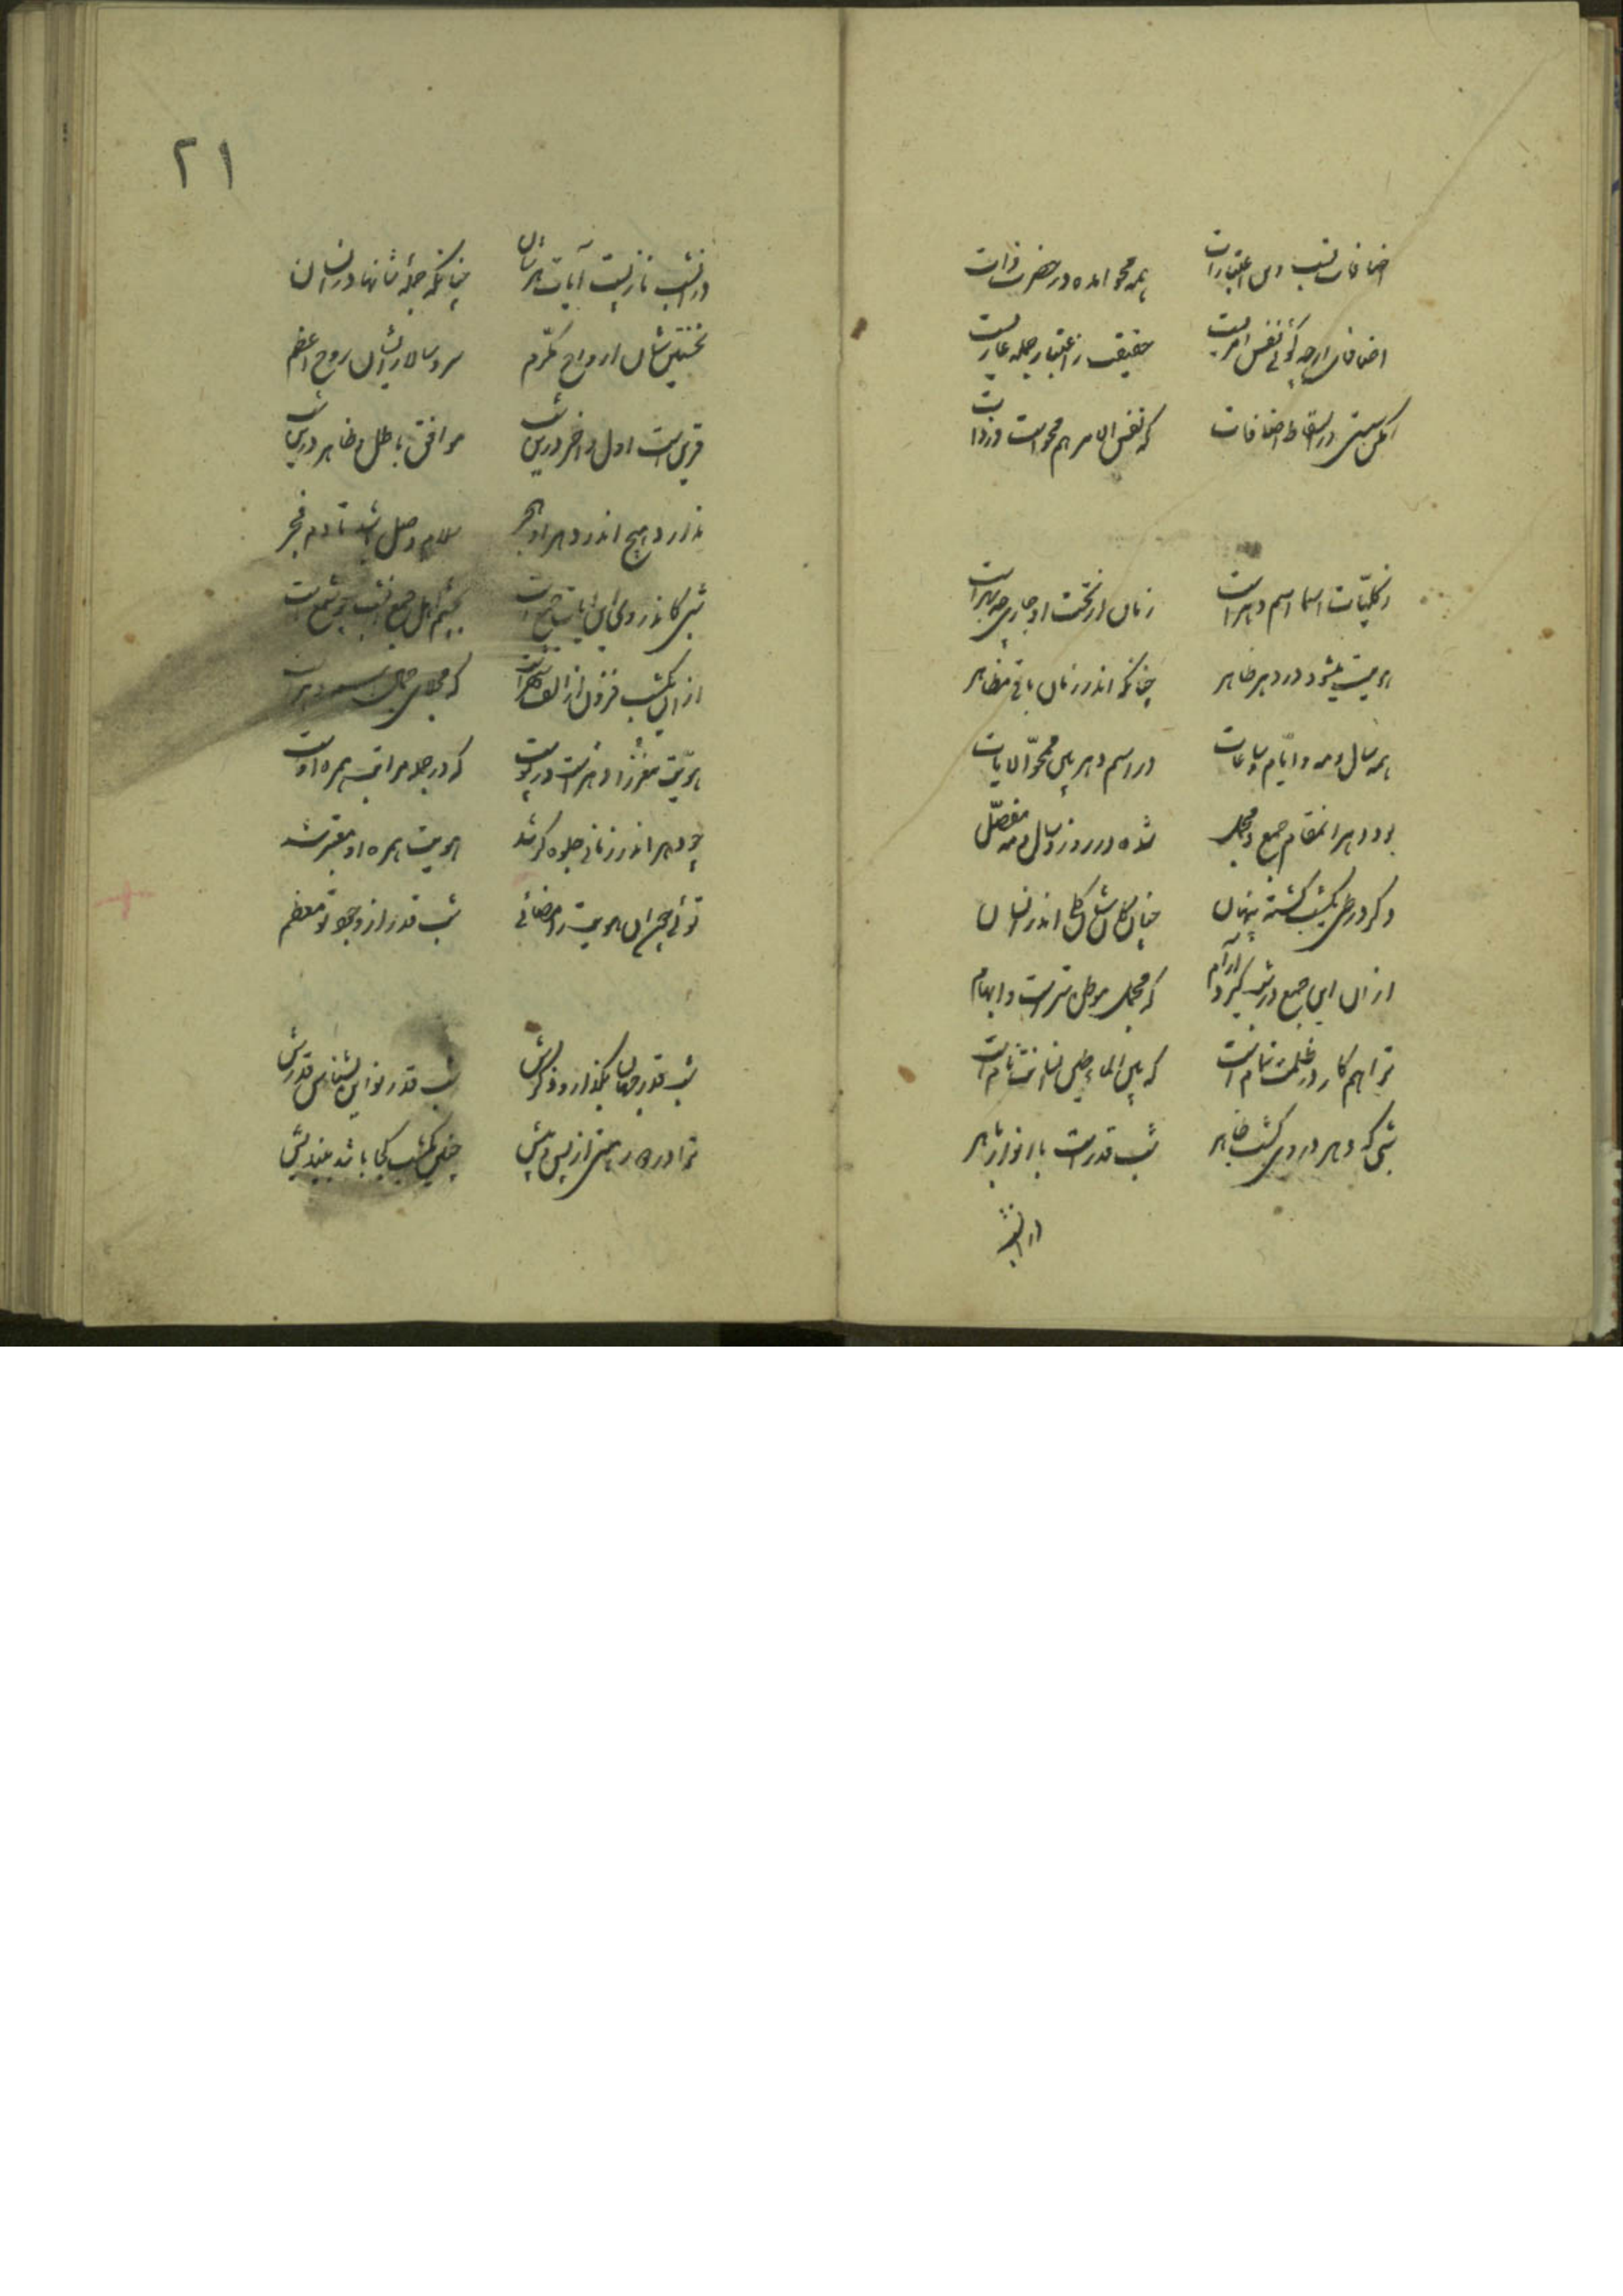 اضافات نسب وین اعتبارات همه محو آمده در حضرت ذات
اضافات ارچه گوئی نفس امریست حقیقت ز اعتبار جمله عاریست
مکن سستی در اسقاط اضافات که نفس الامر هم محو است در ذات
ز کلیات اسما اسم دهر است زمان از تحت او جاری چو نهر است
هویت میشود در دهر ظاهر چنانکه اندر زمان باقی مظاهر
همه سال و مه و ایام و ساعات در اسم دهر بین محو الایات
بود دهر انمقام جمع و مجمل شده در روز و سال و مه مفصل
دگر در طی یکشب گشته پنهان چنان کاین شان کلی اندر انسان
از آن این جمع در شب گیرد آرام که مجمل موطن سر است و ابهام
ترا هم کار در ظلمت تمام است که بین الماء و طین
شبی که دهر در وی گشت ظاهر شب قدر است با انوار باهر
در انشب
۲۱
در انشب نازلست آیات هر شان چنانکه جمله شانها در انسان
نخستین شان ارواح مکرم سر و سالار ایشان روح اعظم
قرین است اول و آخر در این شب موافق باطن و ظاهر در این شب
ندارد هیچ اندر دهر او هجر سلام وصل باشد تا دم فجر
شبی کاندر وی این آیات جمع است بچشم اهل جمع انشب چو شمع است
از آن یکشب فزون از الف شهر است که
هویت مغز و دهر است در پوست که در جمله مراتب همره اوست
چو دهر اندر زمانی جلوه گر شد هویت همره او معتبر شد
توئی چون هویت را مضائی شب قدر از وجود تو معظم
شب قدر جهان بگذار و ذکرش شب قدر نو این بشناس قدرش
ترا در کار بینی از پس و پیش چنین یکشب کجا باشد بیندیش